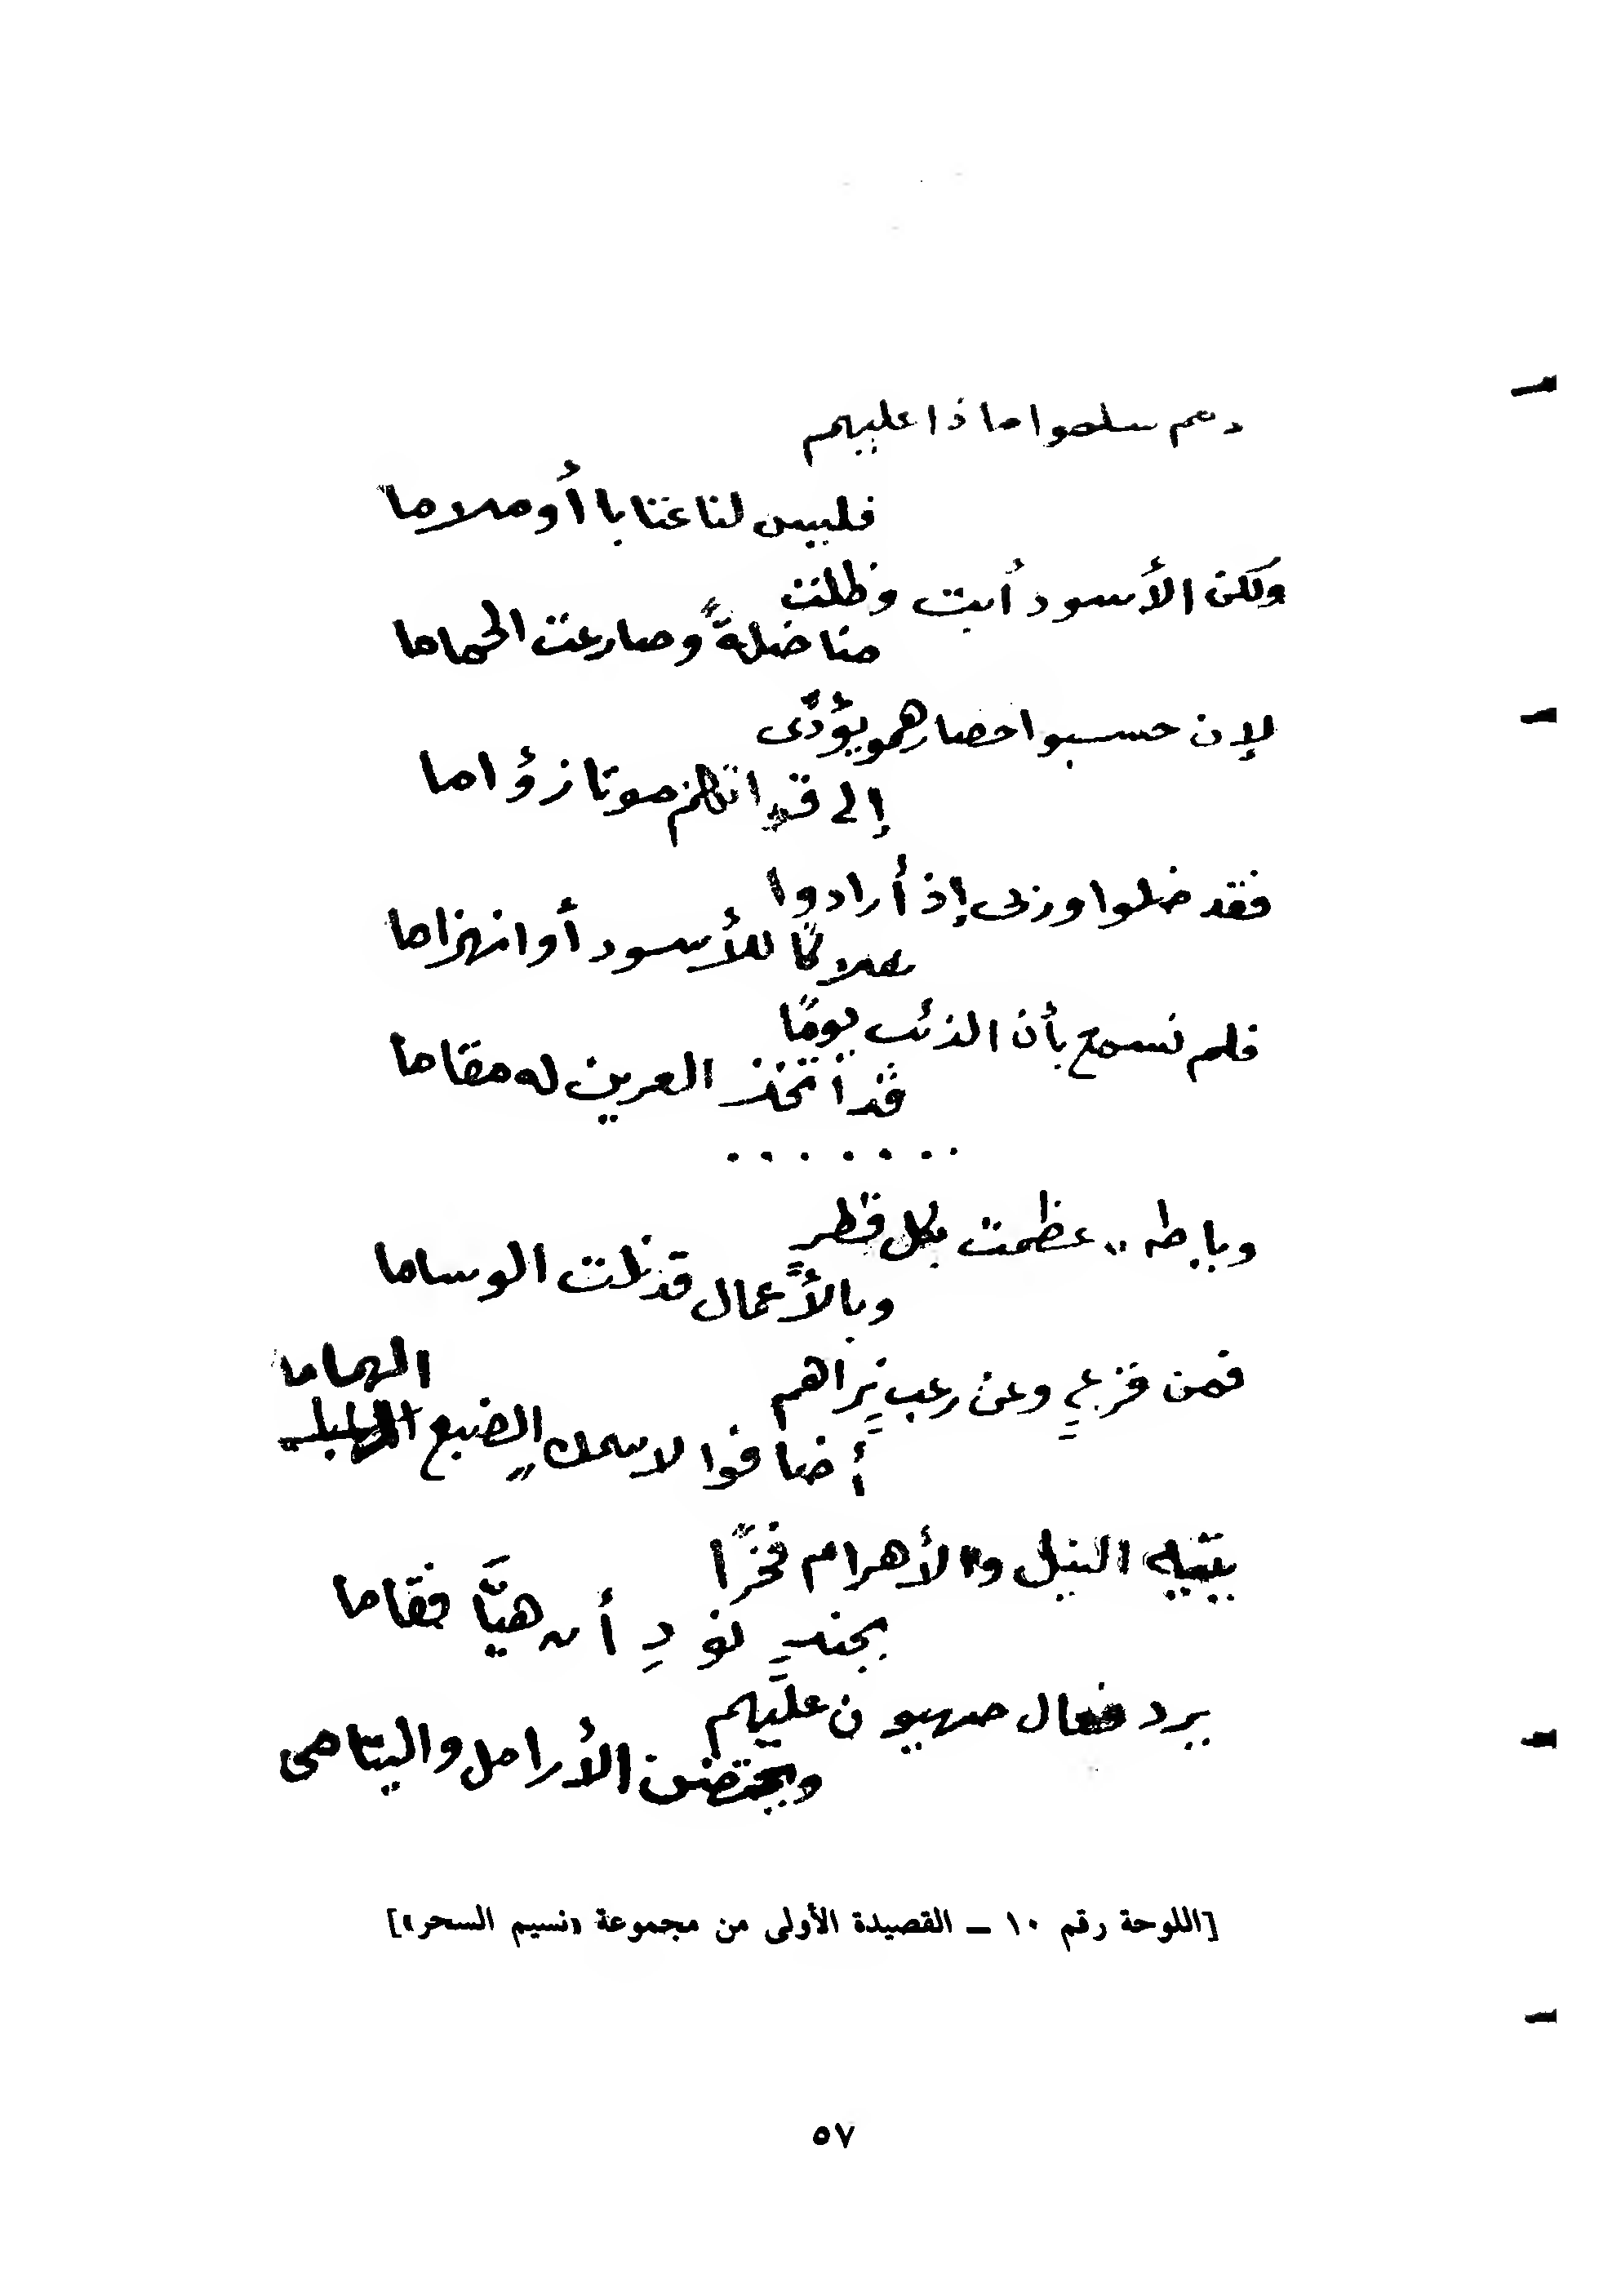 هم سلموا ماذا عليهم
فليس لنا عتابا أو ملاما
ولكن الأسود أبت وظلت
مناضلةً وصارعت الحماما
لإن حسبوا حصارهمو يؤدّى
إلى قد انهم موتا زؤاما
فقد ضلوا وربى إذ أرادوا
هلاكا للأسود أو انهزاما
فلم نسمع بأن الذئب يومًا
قد اتخذ العرين له مقاما
. . . . . . .
ويا طه .. عظمت بكل قطرٍ
وبالأعمال قد نلت الوساما
فمن فزعٍ وعن رعب نراهم
الهماما
أضافوا لاسمك الضبع
يتيه النيل والأهرام فخرًا
بجندٍ نودِ أن هيَّا فقاما
يرد فعال صهيون عليهم
ويحتضن الأرامل واليتامى
[اللوحة رقم ١٠ ــ القصيدة الأولى من مجموعة «نسيم السحر»]
٥٧